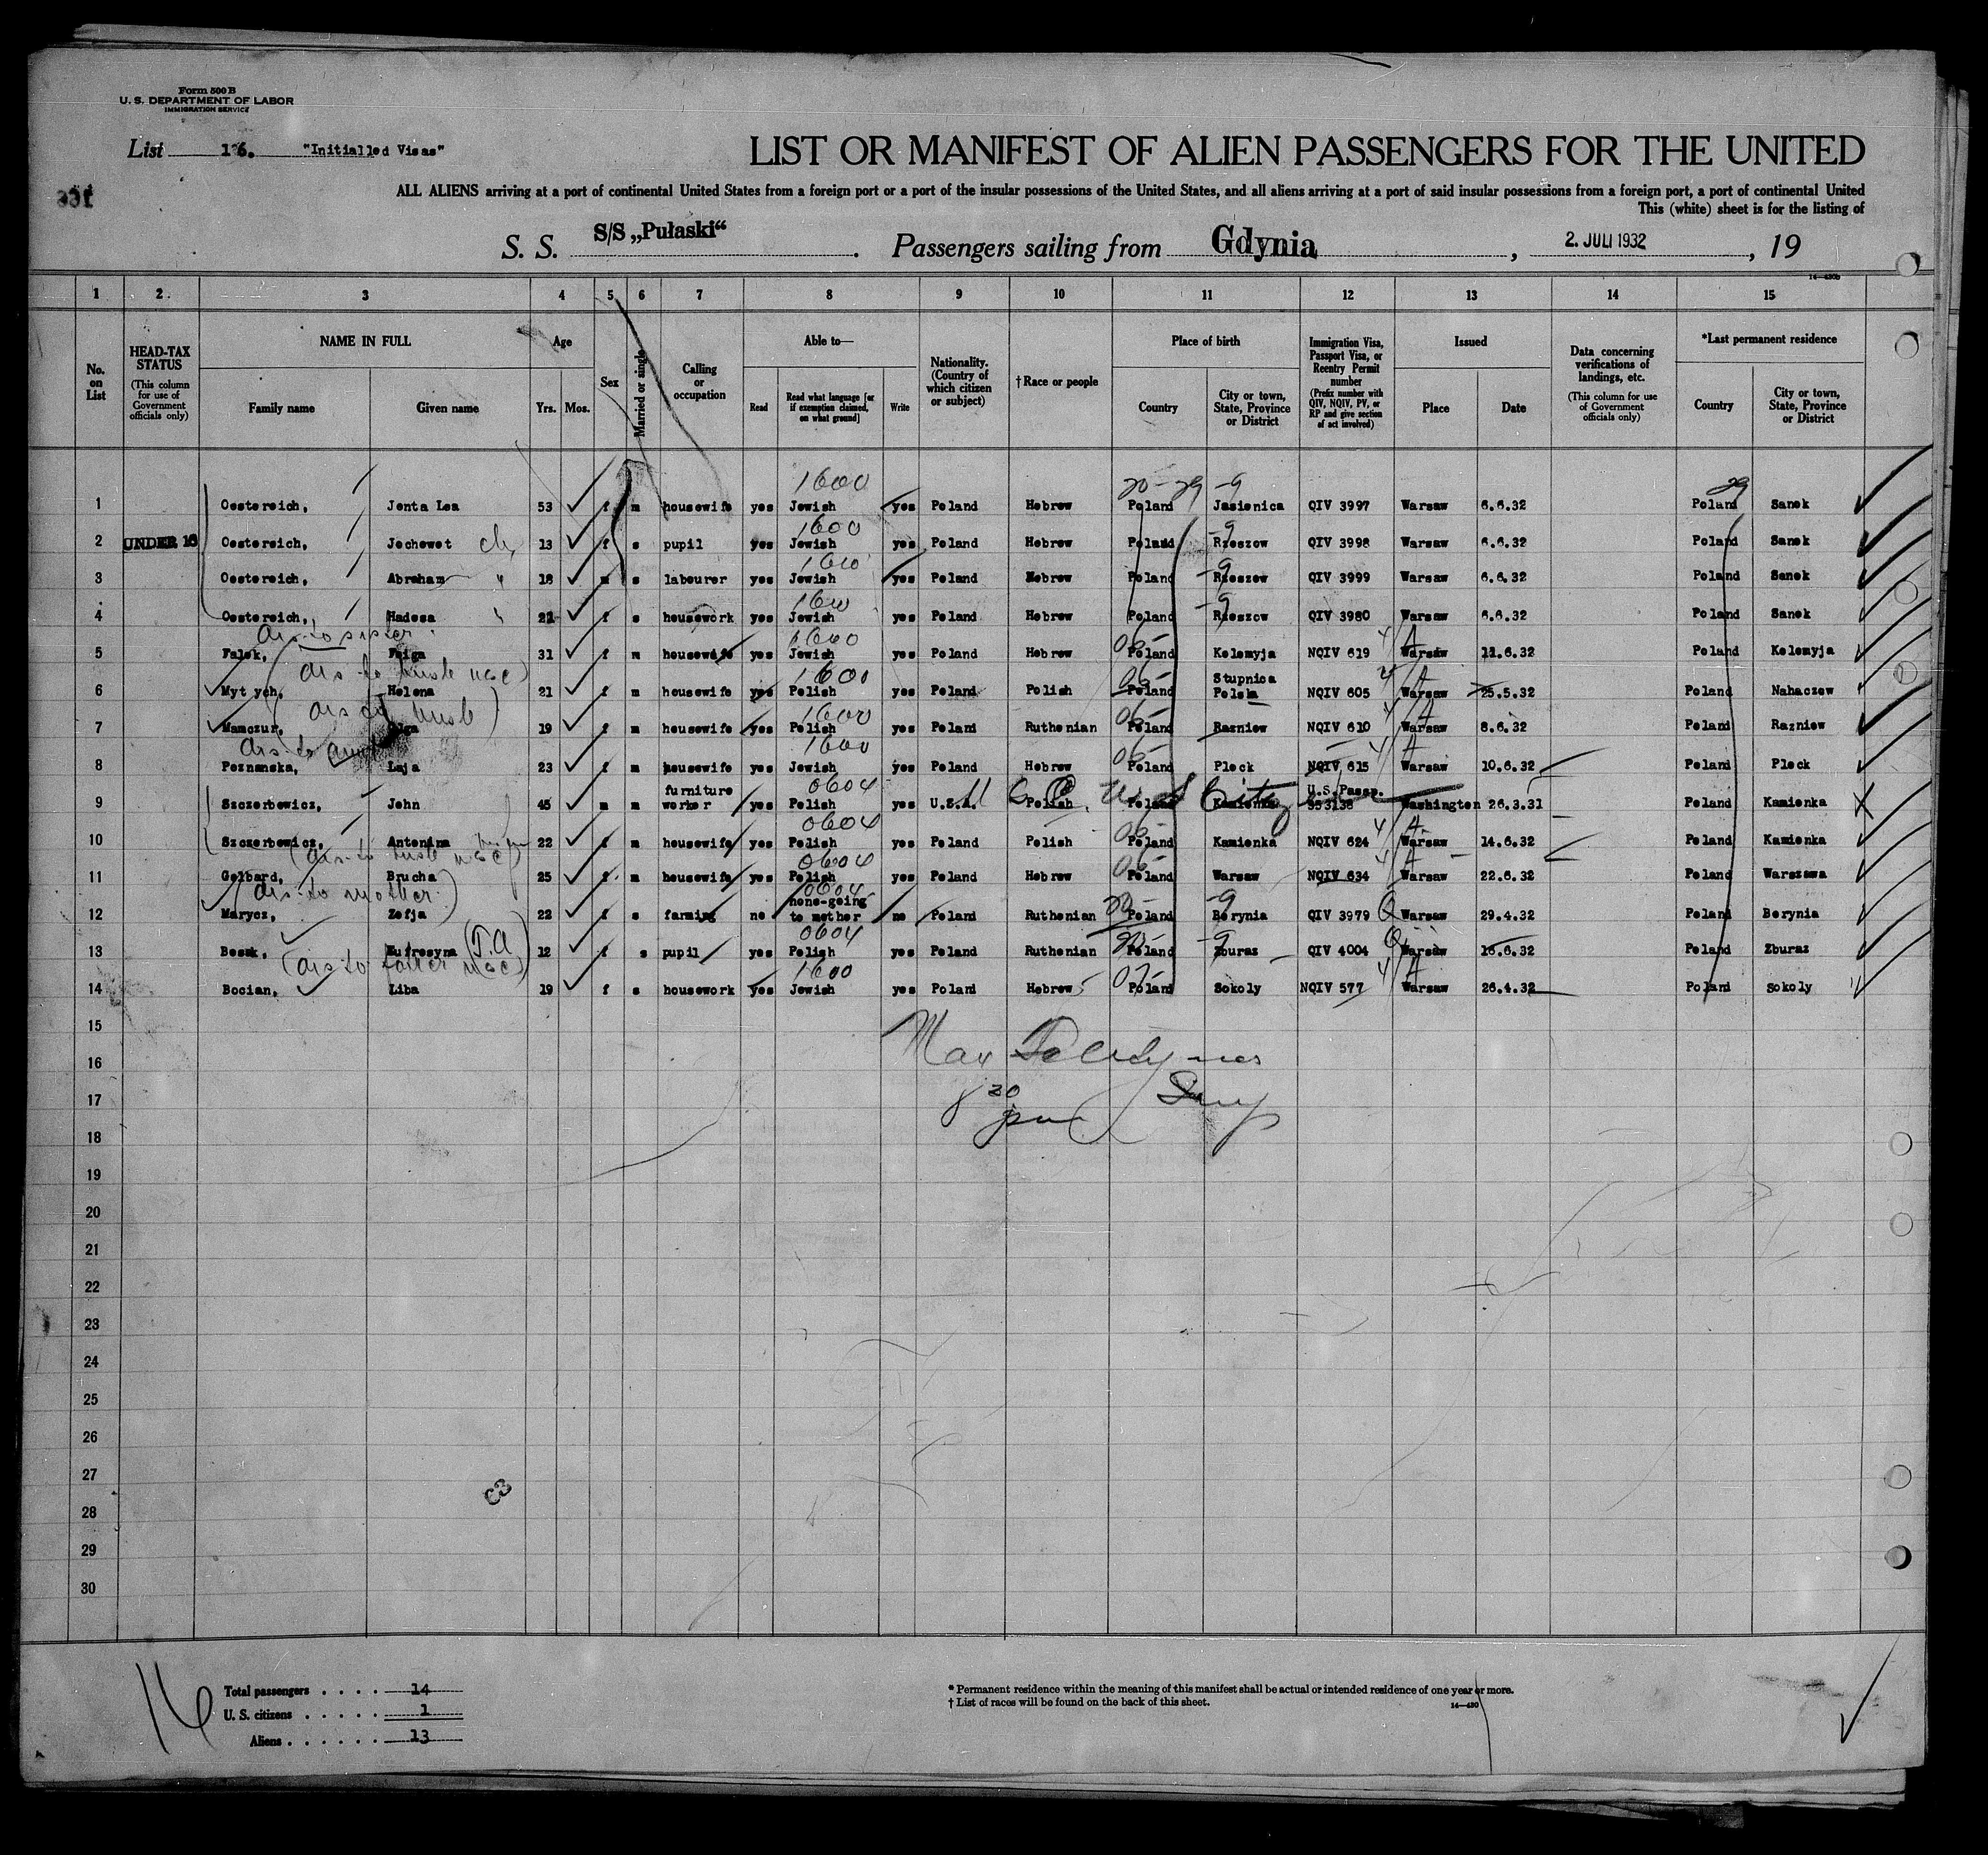 Form 500 B
U. S. DEPARTMENT OF LABOR
IMMIGRATION SERVICE
List 16. "Initialled Visas"
LIST OR MANIFEST OF ALIEN PASSENGERS FOR THE UNITED
ALL ALIENS arriving at a port of continental United States from a foreign port or a port of the insular possessions of the United States, and all aliens arriving at a port of said insular possessions from a foreign port, a port of continental United
This (white) sheet is for the listing of
S. S. S/S „Pułaski“ . Passengers sailing from Gdynia , 2. JULI 1932 , 19
14—430b
1 2 3 4 5 6 7 8 9 10 11 12 13 14 15
No. on List
HEAD-TAX STATUS (This column for use of Government officials only)
NAME IN FULL Family name Given name
Age Yrs. Mos.
Sex
Married or single
Calling or occupation
Able to— Read Read what language [or if exemption claimed, on what ground] Write
Nationality. (Country of which citizen or subject)
† Race or people
Place of birth Country City or town, State, Province or District
Immigration Visa, Passport Visa, or Reentry Permit number (Prefix number with QIV, NQIV, PV, or RP and give section of act involved)
Issued Place Date
Data concerning verifications of landings, etc. (This column for use of Government officials only)
*Last permanent residence Country City or town, State, Province or District
1600 20-29 -9 29
1 Oestereich, Jenta Lea 53 f m housewife yes Jewish yes Poland Hebrew Poland Jasienica QIV 3997 Warsaw 6.6.32 Poland Sanok
1600 -9
2 UNDER 16 Oestereich, Jochewet ch 13 f s pupil yes Jewish yes Poland Hebrew Poland Rzeszow QIV 3998 Warsaw 6.6.32 Poland Sanok
1600 -9
3 Oestereich, Abraham " 18 m s labourer yes Jewish yes Poland Hebrew Poland Rzeszow QIV 3999 Warsaw 6.6.32 Poland Sanok
1600 -9
4 Oestereich, Hadesa " 21 f s housework yes Jewish yes Poland Hebrew Poland Rzeszow QIV 3980 Warsaw 6.6.32 Poland Sanok
to sister 1600 06- 4/A
5 Falek, Faiga 31 f m housewife yes Jewish yes Poland Hebrew Poland Kolomyja NQIV 619 Warsaw 11.6.32 Poland Kolomyja
to husb 1600 06-
6 Mytych, Helena 21 f m housewife yes Polish yes Poland Polish Poland Stupnica Polska NQIV 605 Warsaw 25.5.32 Poland Nahaczow
husb 1600 06- 4/A
7 Mamczur, Olga 19 f m housewife yes Polish yes Poland Ruthenian Poland Razniow NQIV 610 Warsaw 8.6.32 Poland Razniow
to 1600 06- 4/A
8 Poznanska, Laja 23 f m housewife yes Jewish yes Poland Hebrew Poland Plock NQIV 615 Warsaw 10.6.32 Poland Plock
0604 U S City
9 Szczerbowicz, John 45 m m furniture worker yes Polish yes U.S.A. Polish Poland Kamienka U.S.Passp. 353138 Washington 26.3.31 Poland Kamienka
0604 06- 4/A
10 Szczerbowicz, Antonina 22 f m housewife yes Polish yes Poland Polish Poland Kamienka NQIV 624 Warsaw 14.6.32 Poland Kamienka
to husb 0604 06- 4/A
11 Gelbard, Brucha 25 f m housewife yes Polish yes Poland Hebrew Poland Warsaw NQIV 634 Warsaw 22.6.32 Poland Warszawa
to mother 0604 -9
12 Marycz, Zofja 22 f s farming no none-going to mother no Poland Ruthenian Poland Borynia QIV 3979 Q Warsaw 29.4.32 Poland Borynia
0604 -9
13 Bosak, Eufrosyna 12 f s pupil yes Polish yes Poland Ruthenian Poland Zburaz QIV 4004 Q Warsaw 16.6.32 Poland Zburaz
to father 1600 4/A
14 Bocian, Liba 19 f s housework yes Jewish yes Poland Hebrew Poland Sokoly NQIV 577 Warsaw 26.4.32 Poland Sokoly
15
16
17
8 30
18
19
20
21
22
23
24
25
26
27
28
29
30
63
16
Total passengers . . . . 14
U. S. citizens . . . . . 1
Aliens . . . . . . 13
* Permanent residence within the meaning of this manifest shall be actual or intended residence of one year or more.
† List of races will be found on the back of this sheet.
14—430